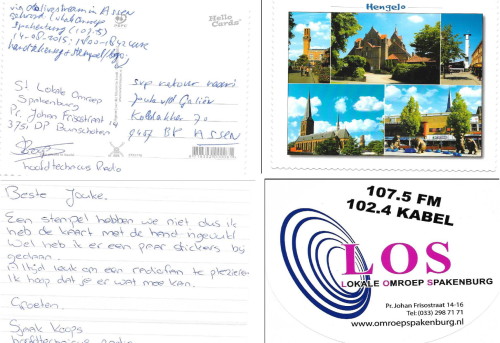 via de livestream in Assen
gehoord: Lokale Omroep
Spakenburg (107.5)
14-08-2015: 1800-1842 uur
handtekening + stempel/logo
St Lokale Omroep
Spakenburg
Pr. Johan Frisostraat
3751 DP Bunschoten
hoofdtechnicus Radio
Hello
Cards
svp retour naar:
9407 BK ASSEN
Hengelo
Beste Jouke,
Een stempel hebben we niet dus ik
heb de kaart met de hand ingevuld
Wel heb ik er een paar stickers bij
gedaan.
Altijd leuk om een radiofan te plezieren
Ik hoop dat je er wat mee kan.
Groeten,
Sjaak Koops
hoofdtechnicus radio
107.5 FM
102.4 KABEL
LOS
LOKALE OMROEP SPAKENBURG
Pr. Johan Frisostraat 14-16
Tel: (033) 298 71 71
www.omroepspakenburg.nl